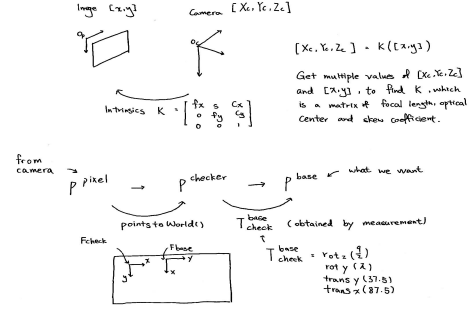 Image [x,y]
Camera [Xc, Yc, Zc]
Oc
[Xc, Yc, Zc] = K([x,y])
Get multiple values of [Xc, Yc, Zc]
and [x,y], to find K, which
is a matrix of focal length, optical
Center and skew coefficient.
Intrinsics K = [fx s Cx
0 fy Cy
0 0 1]
from
camera
P pixel → P checker → P base
what we want
pointsToWorld()
T base check (obtained by measurement)
Fcheck
Fbase
x
y
y
x
T base check = rot z
rot y
trans y (37.5)
trans x (87.5)